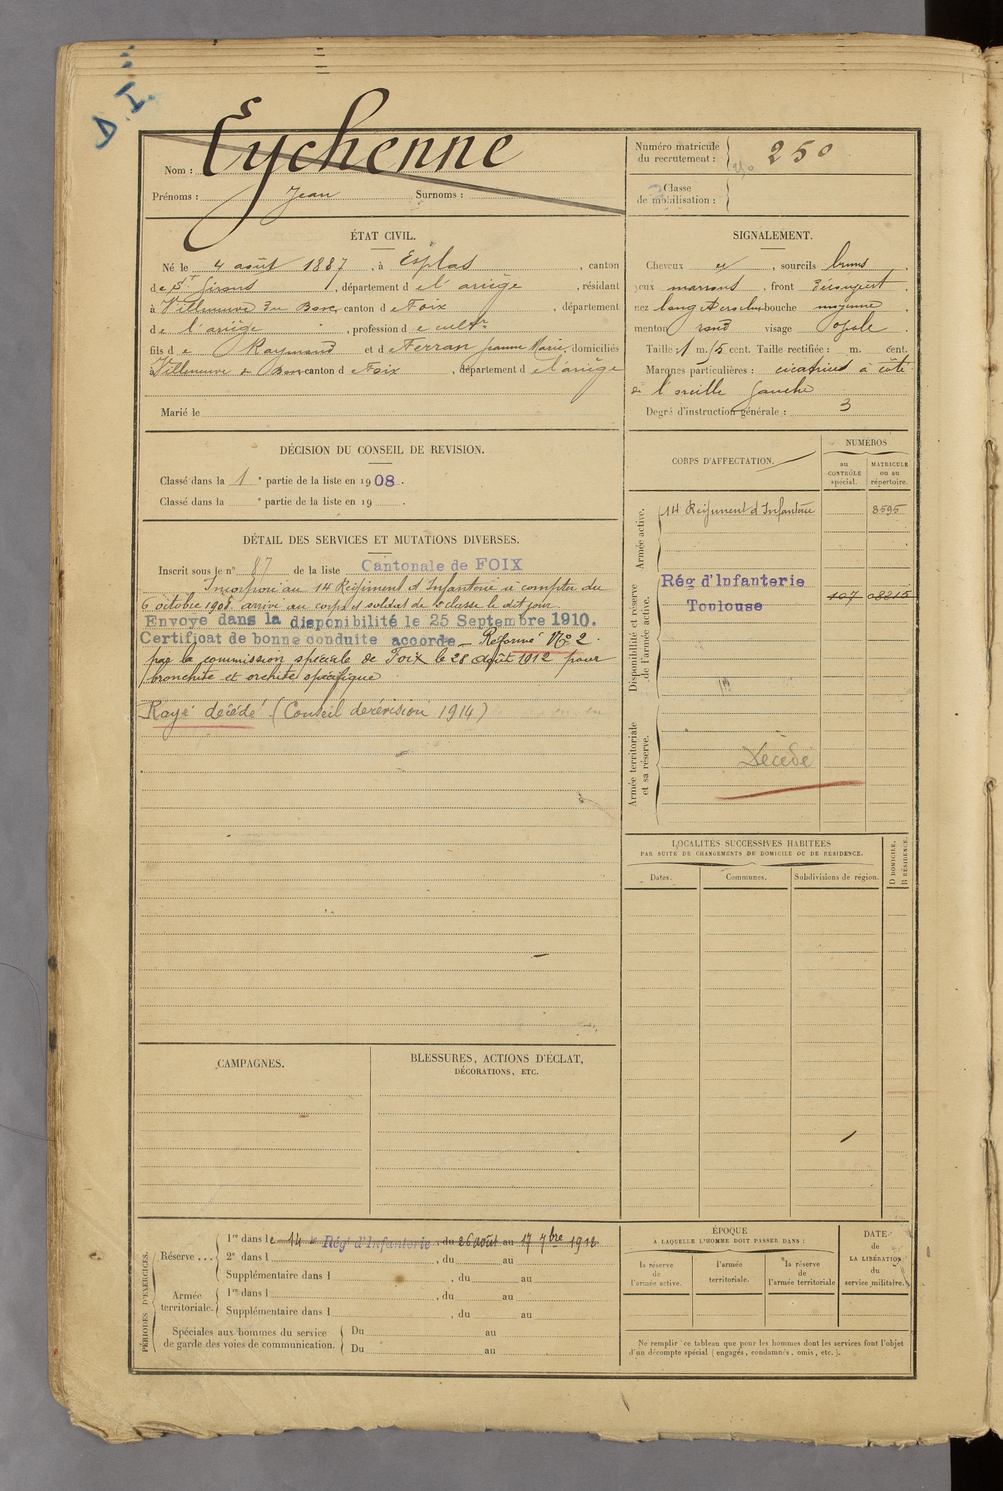 D. I.
Nom : Eychenne
Prénoms : Jean Surnoms :
Numéro matricule
du recrutement : 250
Classe
de mobilisation :
ÉTAT CIVIL.
Né le 4 août 1887, à Esplas, canton
de St Girons, département de l'ariège, résidant
à Villeneuve du Bosc canton de Foix, département
de l'ariège, profession de cultr
fils de Raymond et de Ferran Jeanne Marie, domiciliés
Villeneuve du Bosc canton d e Foix, département d e l'ariège
Marié le
SIGNALEMENT.
Cheveux et, sourcils bruns,
yeux marrons, front découvert
nez long bouche moyenne
menton rond visage ovale.
Taille : 1 m. 15 cent. Taille rectifiée : m. cent.
Marques particulières : cicatrice à côté
de l'oreille gauche
Degré d'instruction générale : 3
DÉCISION DU CONSEIL DE REVISION.
Classé dans la 1e partie de la liste en 1908.
Classé dans la e partie de la liste en 19 .
CORPS D'AFFECTATION.
NUMÉROS
au
CONTRÔLE
spécial.
MATRICULE
ou au
répertoire.
Armée active.
14 Régiment d'Infanterie 3595
Disponibilité et réserve
de l'armée active.
Rég d'Infanterie
Toulouse
107 08815
Armée territoriale
et sa réserve.
Décédé
DÉTAIL DES SERVICES ET MUTATIONS DIVERSES.
Inscrit sous le n° 87 de la liste Cantonale de FOIX
Incorporé au 14 Régiment d'Infanterie à compter du
6 octobre 1908. arrivé au corps et soldat de 2e classe le dit jour.
Envoyé dans la disponibilité le 25 Septembre 1910.
Certificat de bonne conduite accordé _ Réformé No 2
par la commission spéciale de Foix le 28 août 1912 pour
bronchite et orchite spécifique
Rayé décédé (Conseil de révision 1914)
LOCALITÉS SUCCESSIVES HABITÉES
PAR SUITE DE CHANGEMENTS DE DOMICILE OU DE RÉSIDENCE.
Dates.
Communes.
Subdivisions de région.
D DOMICILE.
R RÉSIDENCE.
CAMPAGNES.
BLESSURES, ACTIONS D'ÉCLAT,
DÉCORATIONS, ETC.
PÉRIODES D'EXERCICES.
Réserve ...
1re dans le 14e Rég d'Infanterie, du 26 août au 17 7bre 1912
2e dans l , du au
Supplémentaire dans l , du au
Armée
territoriale.
1re dans l , du au
Supplémentaire dans l , du au
Spéciales aux hommes du service
de garde des voies de communication.
Du au
Du au
ÉPOQUE
A LAQUELLE L'HOMME DOIT PASSER DANS :
la réserve
de
l'armée active.
l'armée
territoriale.
la réserve
de
l'armée territoriale
DATE
de
LA LIBÉRATION
du
service militaire.
Ne remplir ce tableau que pour les hommes dont les services font l'objet
d'un décompte spécial (engagés, condamnés, omis, etc.).